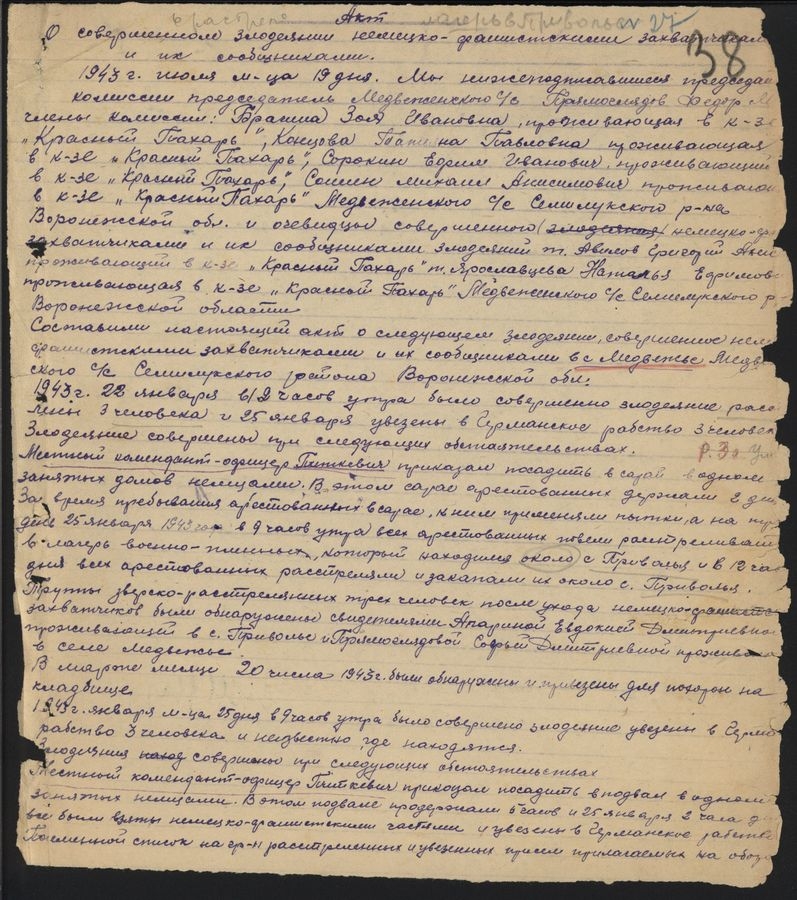 Акт лагерь в Привольи 27
38
О совершенном злодеянии немецко-фашистскими захватчиками
и их сообщниками.
1943 г. июля м-ца 19 дня. Мы нижеподписавшиеся председа
комиссии председатель Медвеженского с/с Прямоглядов Федор М
члены комиссии: Зоя Ивановна, проживающая в к-зе
„Красный Пахарь", Концова Татьяна Павловна проживающая
в к-зе „Красный Пахарь", Сорокин Ефрем Иванович, проживающий
в к-зе „Красный Пахарь", Сомин Михаил Анисимович прожива
в к-зе „Красный Пахарь" Медвеженского с/с Семилукского р-на
Воронежской обл. и очевидцы совершенного (злодеяния) немецко-фа
захватчиками и их сообщниками злодеяний т. Авилов Григорий
проживающий в к-зе „Красный Пахарь" т. Ярославцева Наталья Ефримов
проживающая в к-зе „Красный Пахарь" Медвеженского с/с Семилукского р-
Воронежской области
Составили настоящий акт о следующем злодеянии, совершенное нем
фашистскими захватчиками и их сообщниками в с Медвежье Медве
ского с/с Семилукского района Воронежской обл.
1943 г. 22 января в 12 часов утра было совершенно злодеяние расс
ляны 3 человека и 25 января увезены в Германское рабство 3 человек
Злодеяние совершены при следующих обстоятельствах.
Местный комендант-офицер Питкевич приказал посадить в сарай в одном
занятых домов немцами. В этом сарае арестованных держали 2 дня
За время пребывания арестованных в сарае, к ним применяли пытки, а на тре
дне 25 января 1943 года в 9 часов утра всех арестованных повели расстреливать
в лагерь военно-пленных, который находился около с Привалья и в 12 час
дня всех арестованных расстреляли и закапали их около с. Приволья.
Труппы зверско-расстрелянных трех человек после ухода немецко-фашистс
захватчиков были обнаружены свидетелями Апариной Евдокией Дмитриевной
проживающий в с. Приволье и Прямоглядовой Софьей Дмитриевной прожива
в селе Медвежье.
В марте месяце 20 числа 1943 г. были обнаружены и привезены для похорон на
кладбище
1943 г. января м-ца 25 дня в 9 часов утра было совершено злодеяние увезены в Герма
рабство 3 человека и неизвестно, где находятся.
Злодеяния совершены при следующих обстоятельствах
Местный комендант-офицер Питкевич приказал посадить в подвал в одном
занятых немцами. В этом подвале продержали 5 часов и 25 января 2 часа д
все были взяты немецко-фашистскими частями и увезены в Германское рабство
Поименной список на гр-н расстрелянных и увезенных прилагаемых на оборо